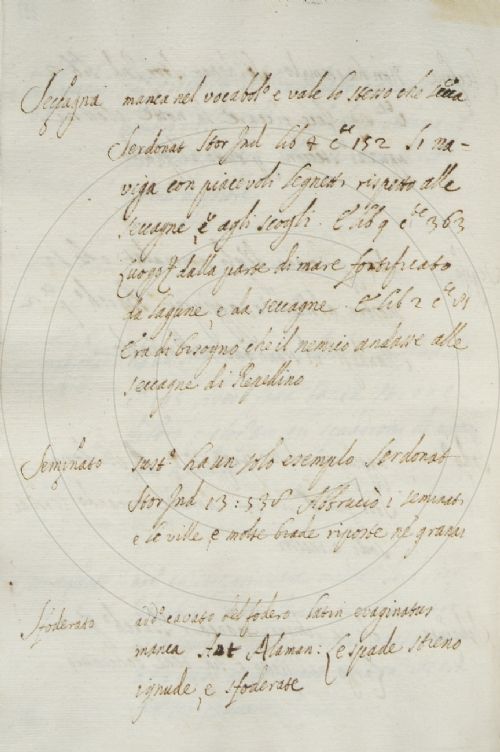 Seccagna manca nel vocabol.o e vale lo stesso che secca
Serdonat Stor Ind lib 4 c.te 152 Si na-
viga con piacevoli legnetti rispetto alle
seccagne, e agli scogli. E lib 9 c.te 363
Luogo dalla parte di mare fortificato
da lagune e da seccagne. E lib 2 c.te 81
Era di bisogno che il nemico andasse alle
seccagne di Repellino
Seminato sust.o ha un solo esempio Serdonat
Stor Ind 13: 536 Abbruciò i seminati
e le ville e molte biade riposte ne granai
Sfoderato add.o cavato del fodero latin evaginatus
manca Ant Alaman: Le spade strено
ignude, e sfoderate